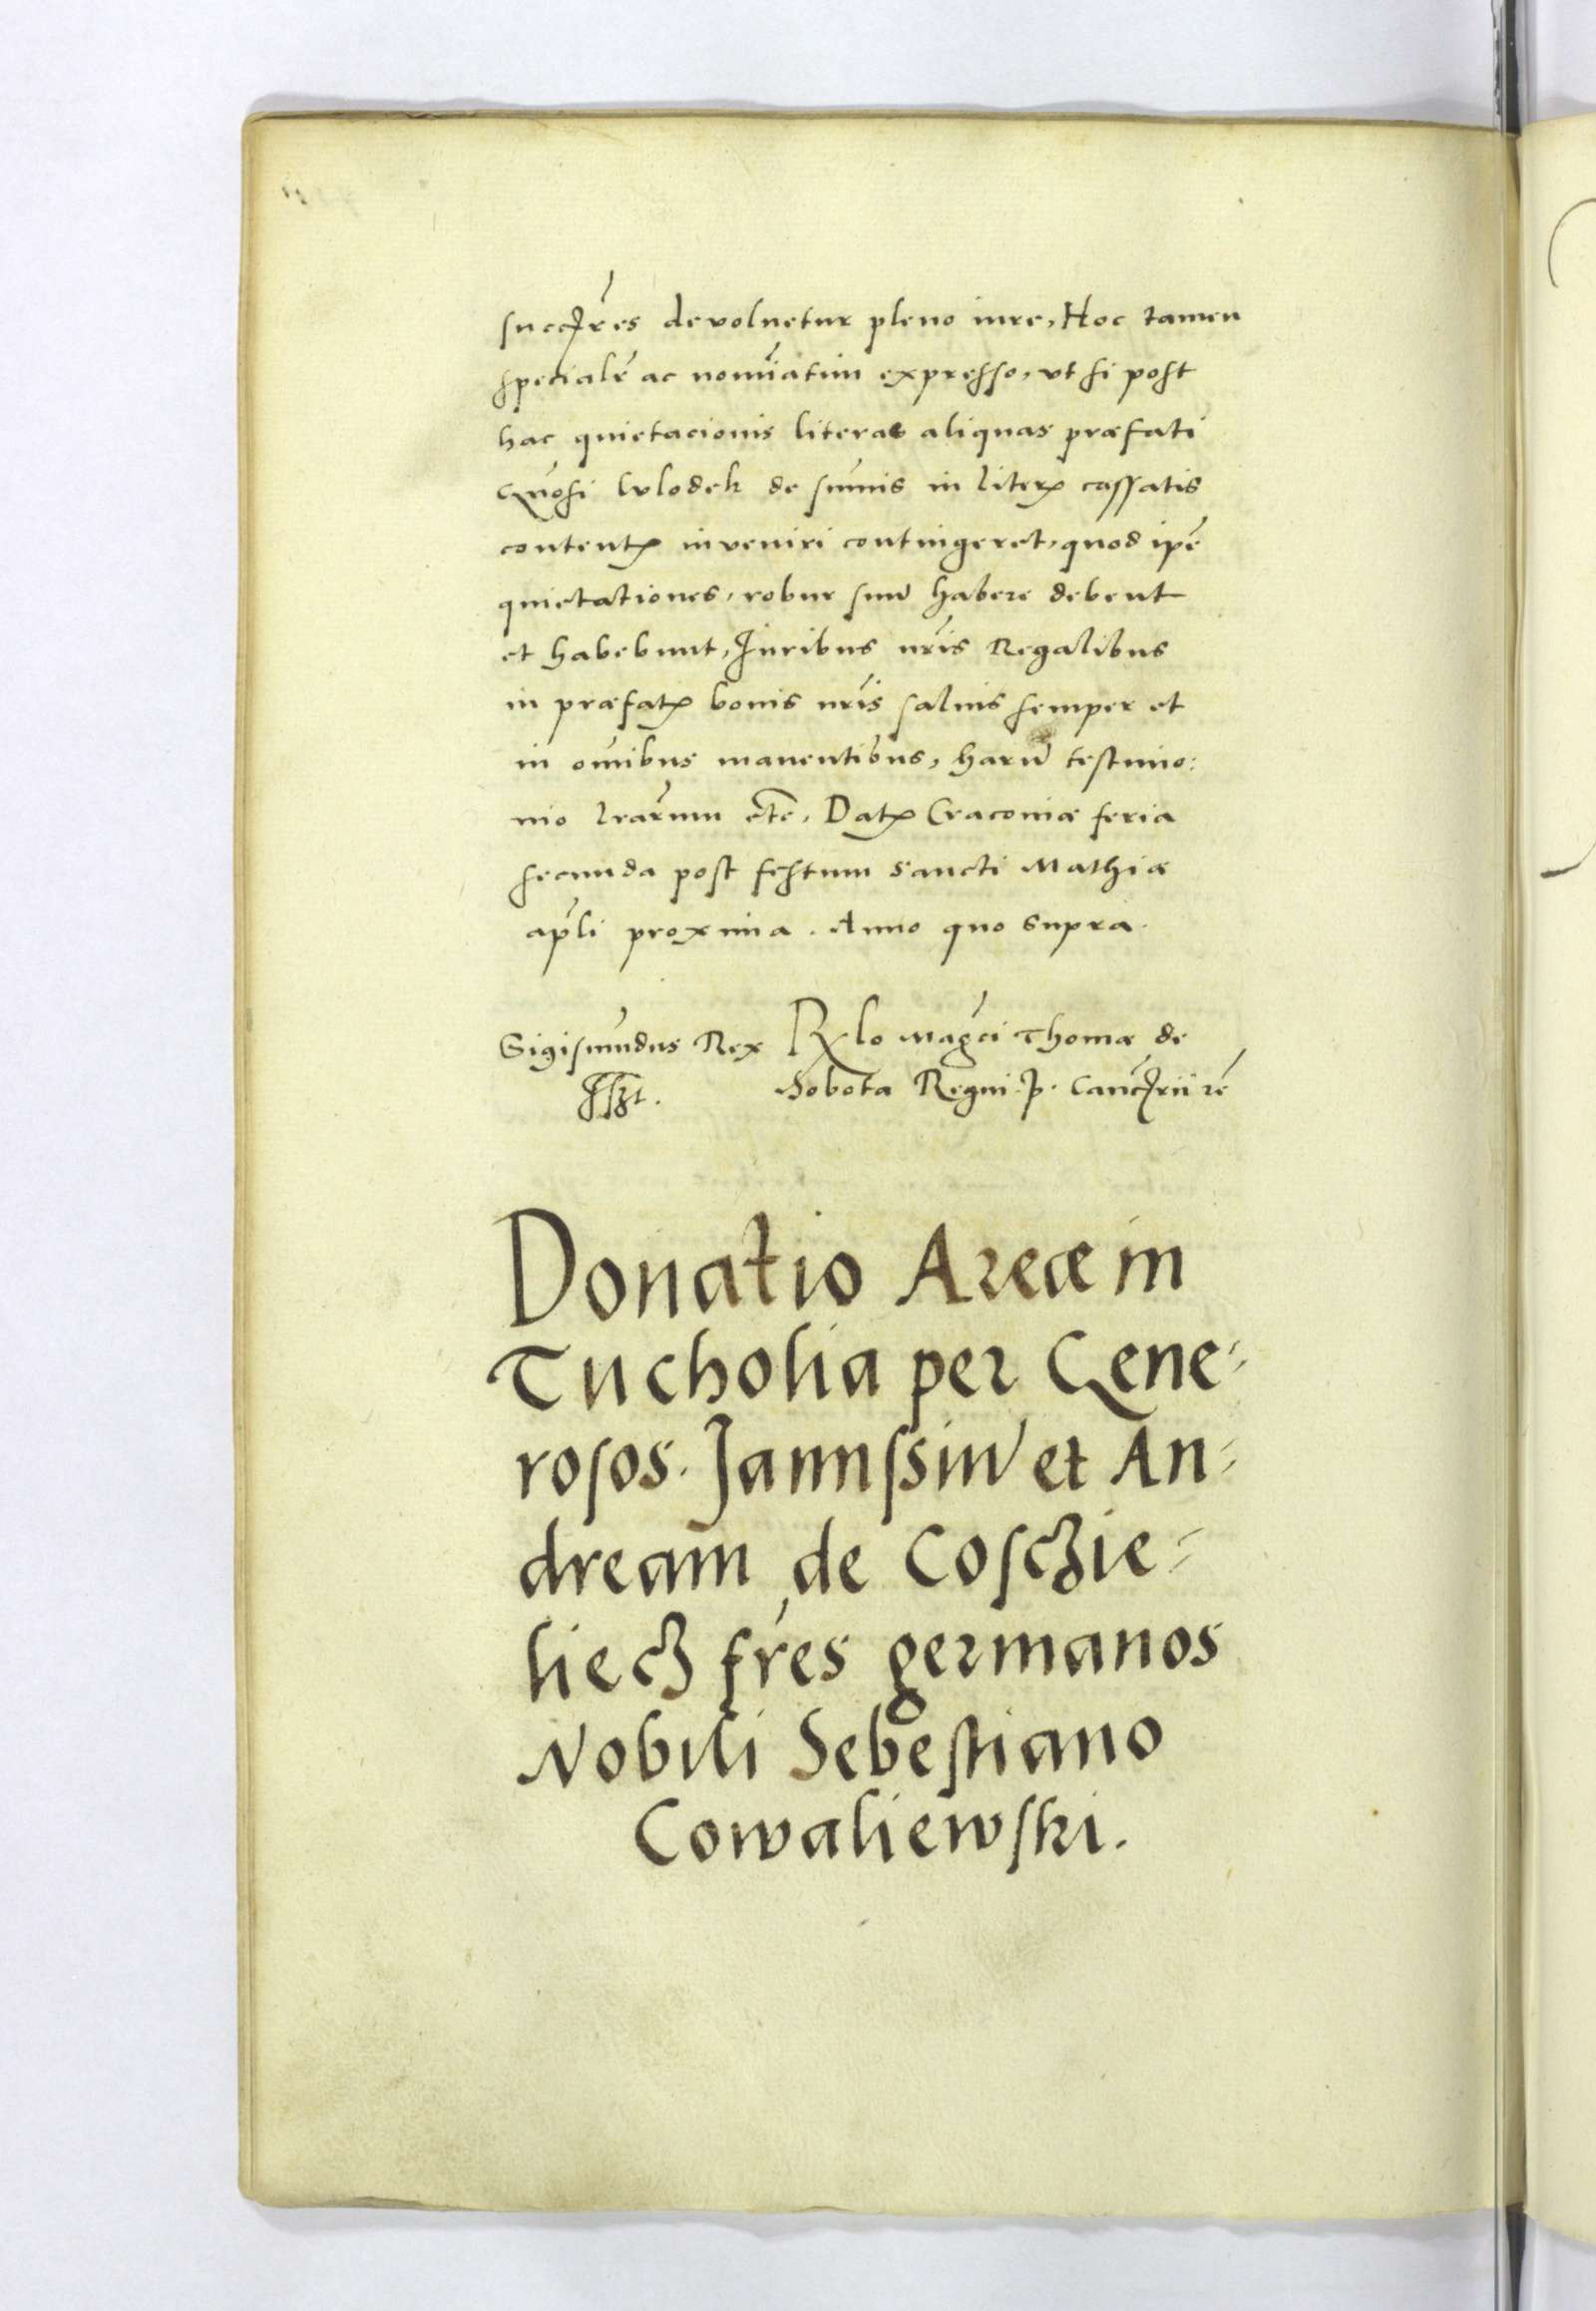 succr̃es devolvetur pleno iure, Hoc tamen
specialr̃ ac nomiãtim expresso, vt si post
hac quietacionis literas aliquas præfati
Gnõsi Wlodek de sum̃is in literꝭ cassatis
contentꝭ inveniri contingeret, quod ip̃e
quietationes, robur suũ habere debent
et habebunt, Iuribus nr̃is Regalibus
in præfatꝭ bonis nr̃is salvis semper et
in om̃ibus manentibus, harũ testimo:
nio lrãrum etc̃. Datꝭ Cracoviæ feria
secunda post festum sancti Mathiæ
apl̃i proxima. Anno quo supra.
Sigismũdus Rex Relo Mag̃ci Thomæ de
Sobota Regni P. Canc̃rii rẽ
Donatio Areæ in
Tucholia per Gene-
rosos. Janussiũ et An-
dream de Cosczie-
liecz fr̃es germanos
Nobili Sebestiano
Cowaliewski.